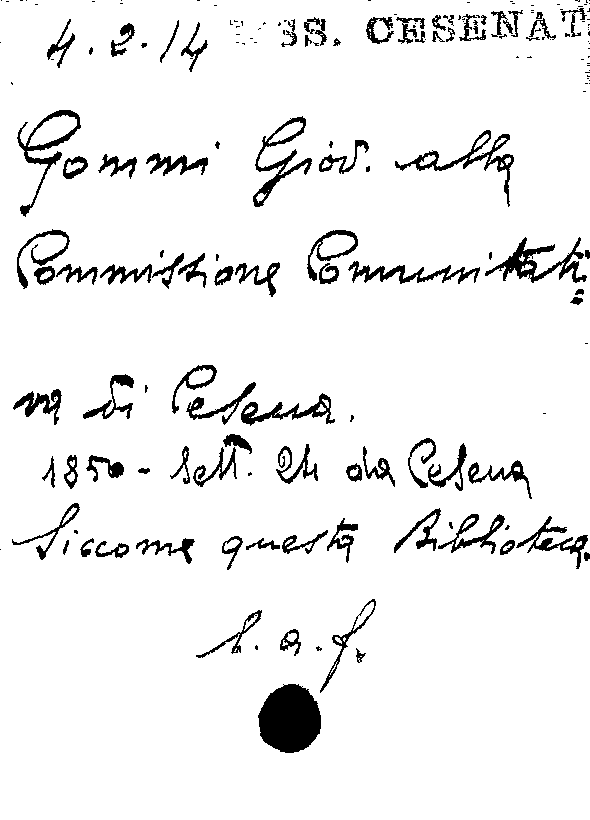 4.2.14 SS. CESENAT
Gommi Giov. alla
Commissione Comunitati=
va di Cesena.
1850 - Sett. 24 da Cesena
Siccome questa Biblioteca.
l. a. f.